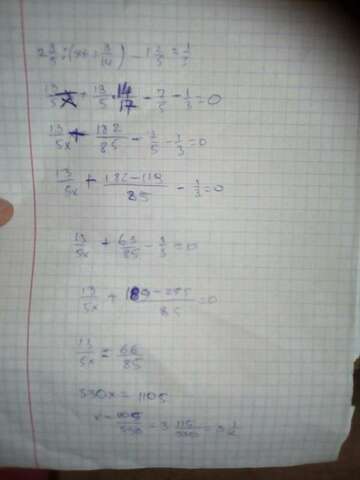 2 3/5 : (x + 3/14) - 1 2/5 = 1/3
13/5x + 13/5 · 14/17 - 7/5 - 1/3 = 0
13/5x + 182/85 - 7/5 - 1/3 = 0
13/5x + (182-119)/85 - 1/3 = 0
13/5x + 63/85 - 1/3 = 0
13/5x + (189-255)/85 = 0
13/5x = 66/85
330x = 1105
x = 1105/330 = 3 115/330 =